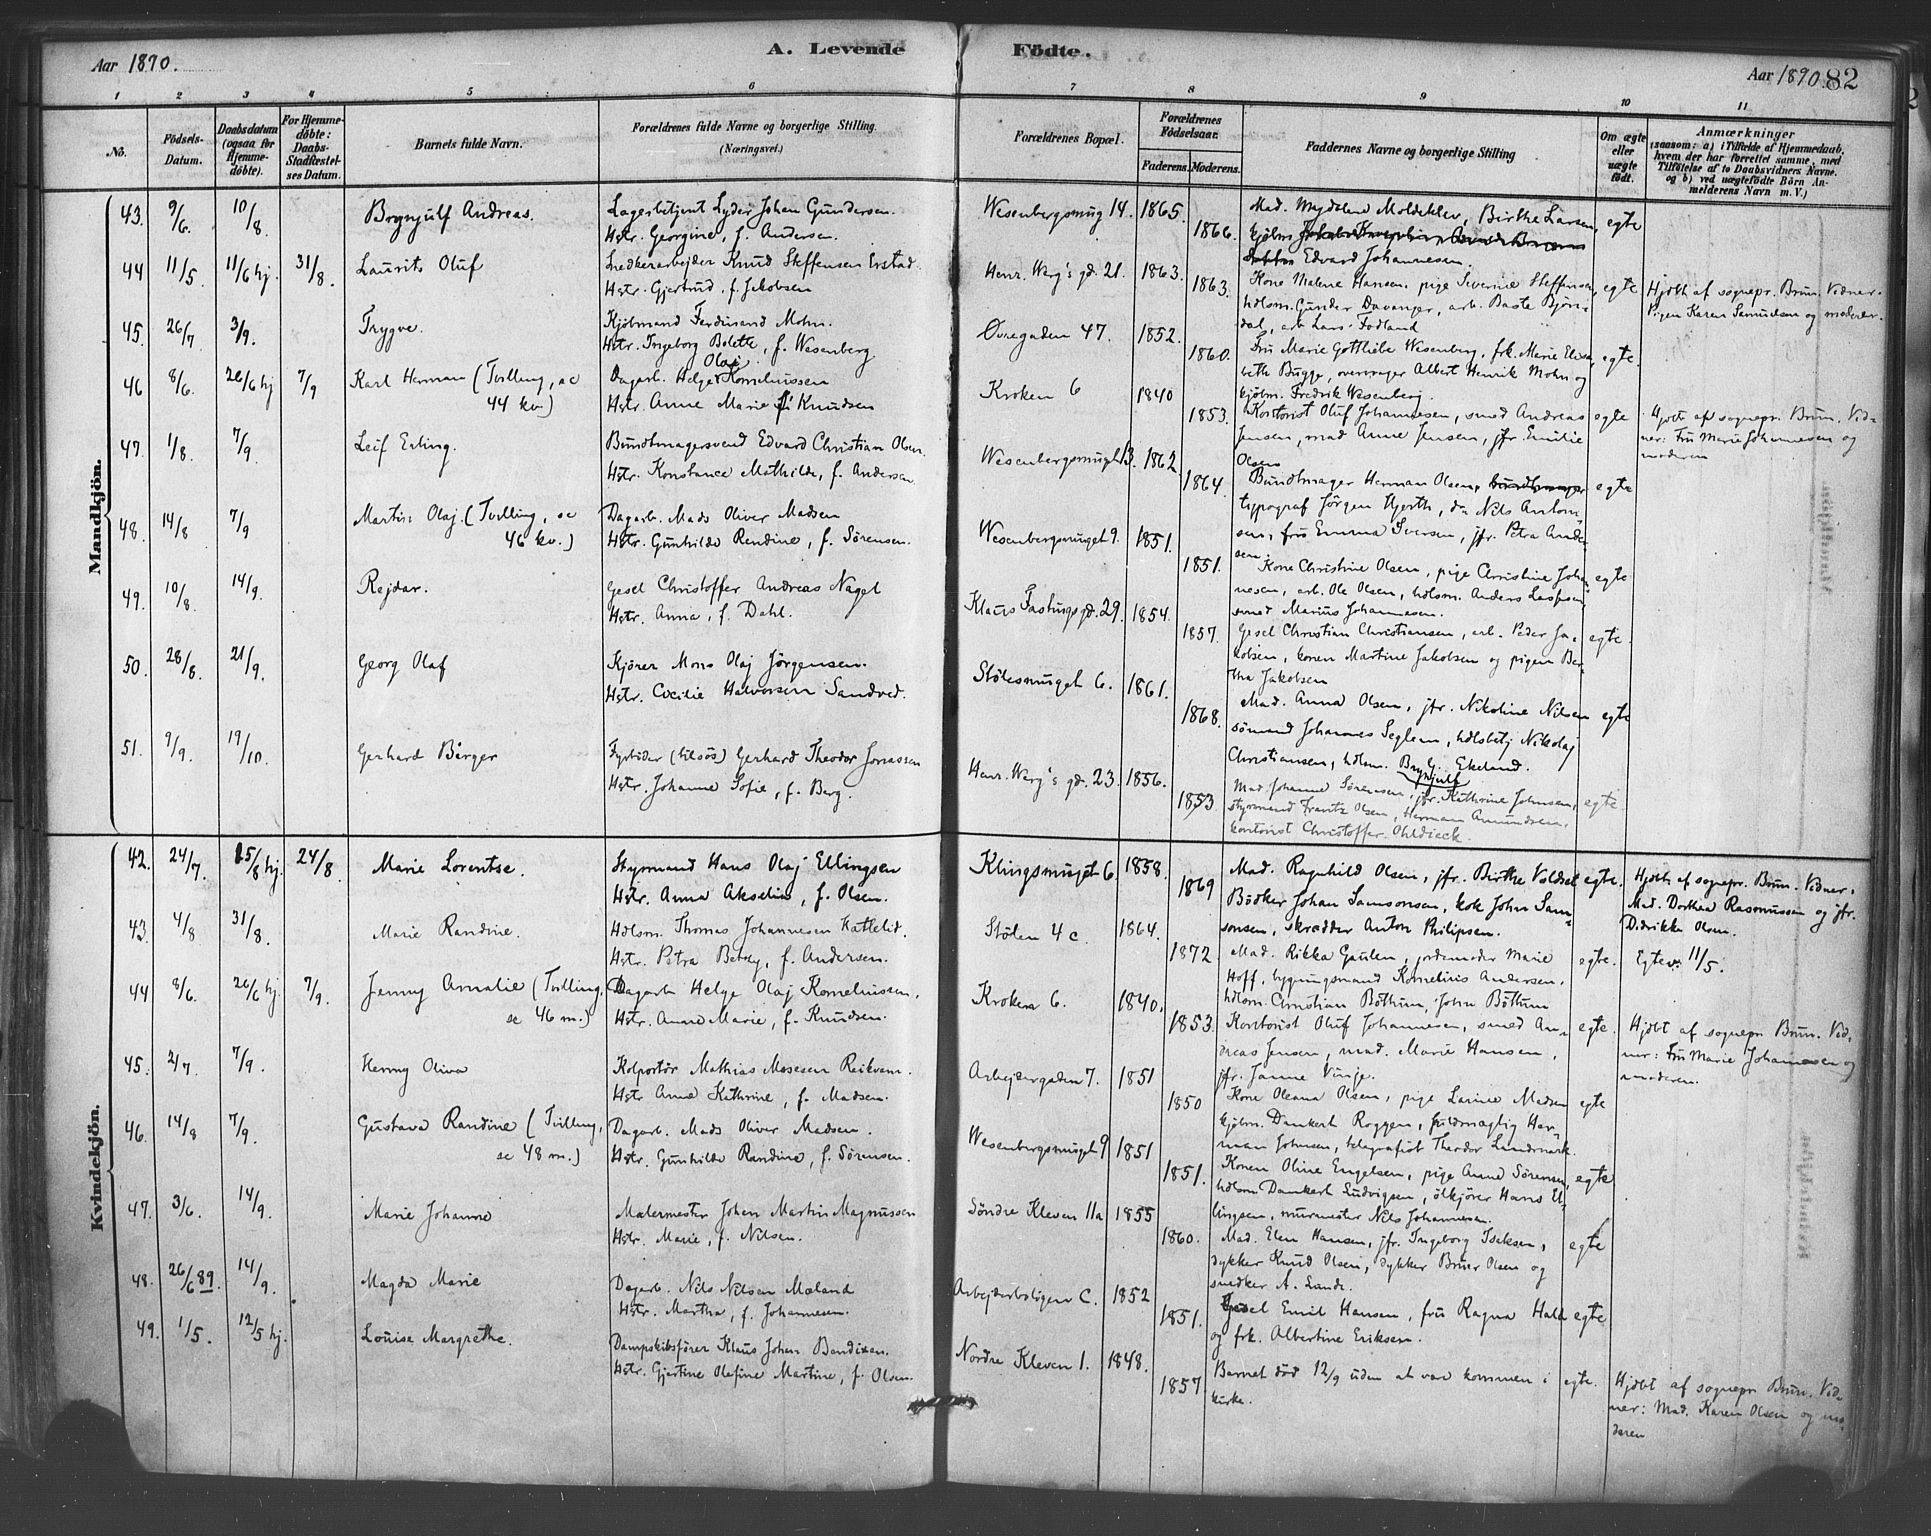 Aar 1890.
A. Levende Födte.
Aar 1890. 82
1 2 3 4 5 6 7 8 9 10 11
No.
Födsels-Datum.
Daabsdatum (ogsaa for Hjemmedöbte).
For Hjemmedöbte: Daabs-Stadfæstelses Datum.
Barnets fulde Navn.
Forældrenes fulde Navne og borgerlige Stilling.
(Næringsvei.)
Forældrenes Bopæl.
Forældrenes Födselsaar.
Faderens.
Moderens.
Faddernes Navne og borgerlige Stilling
Om ægte eller uægte födt.
Anmærkninger
(saasom: a) i Tilfælde af Hjemmedaab, hvem der har forrettet samme, med Tilföielse af to Daabsvidners Navne. og b) ved uægtefödte Börn Anmelderens Navn m. V.)
Mandkjön.
43. 9/6. 10/8 Brynjulf Andreas. Lagerbetjent Lyder Johan Gundersen. Wesenbergsmug 14. 1865. Mad. Magdalene Moldeklev, Birthe Larsen, egte
Hstr. Georgine, f. Andersen. 1866. kjøbm.
Edvard Johannesen.
44 11/5 11/6 hj. 31/8. Laurits Oluf Snedkerarbejder Knud Steffensen Erstad. Henr. Werg's gd. 21. 1863. Kone Malene Hansen, pige Severine Steffensen, egte Hjdbt af sognepr. Brun. Vidner:
Hstr. Gjertrud, f. Jakobsen 1863. hdlsm. Gunder Davanger, arb. Baste Bjørndal, arb Lars Fodland Pigen Karen Samuelsen og moderen.
45. 26/7 3/9. Trygve. Kjøbmand Ferdinand Mohn. Øvregaden 47. 1852. Fru Marie Gottliebe Wesenberg, frk. Marie Elisabeth Bugge, overlærer Albert Henrik Mohn og egte.
Hstr. Ingeborg Bolette, f. Wesenberg 1860. kjøbm. Fredrik Wesenberg.
46 8/6. 26/6 hj 7/9 Karl Herman (Tvilling, se 44 kv.) Dagarb. Helge Olaj Kornelиussen Kroken 6 1840 Kontorist Oluf Johannesen, smed Andreas egte Hjdbt af sognepr. Brun. Vidner: Fru Marie Johannesen og moderen
Hstr. Anne Marie f. Knudsen 1853. Jensen, mad Anne Jensen, jfr. Emilie Olsen
47. 1/8. 7/9 Leif Erling. Bundtmagersvend Edvard Christian Olsen. Wesenbergsmuget 13. 1862. Bundtmager Herman Olsen, egte
Hstr. Konstance Mathilde, f. Andersen 1864. typograf Jørgen Hjorth, do Nils Antonsen, fru Emma Iversen, jfr. Petra Andersen.
48. 14/8 7/9 Martin Olaj. (Tvilling, se 46 kv.) Dagarb. Mads Oliver Madsen Wesenbergsmuget 9. 1851. Kone Christine Olsen, pige Christine Johannesen, arb. Ole Olsen, hdlsm. Anders egte
Hstr. Gunhilde Randine, f. Sørensen. 1851. smed Marius Johannesen.
49. 10/8. 14/9. Rejdar. Gesel Christoffer Andreas Nagel Klaus Fastings gd. 29. 1854. Gesel Christian Christiansen, arb. Peder Jakobsen, konen Martine Jakobsen og pigen Bertha Jakobsen egte.
Hstr. Anna, f. Dahl. 1857.
50. 28/8. 21/9. Georg Olaf Kjører Mons Olaj Jørgensen. Stølesmuget 6. 1861. Mad. Anna Olsen, jfr. Nikoline Nilsen egte
Hstr. Cecilie Halvorsen Sandved. 1868. sømand Johannes Seglem, hdlsbetj Nikolaj Christiansen, hdlsm. Brynjulf Ekeland.
51. 9/9. 19/10. Gerhard Berger Fyrbøder (tilsøs) Gerhard Theodor Jonassen Henr. Werg's gd. 23. 1856. Mad Johanne Sørensen, jfr. Kathrine Johnsen, egte.
Hstr. Johanne Sofie, f. Berg. 1853. styrmand Frantz Olsen, Herman Amundsen, kontorist Christoffer Ohldieck.
Kvindekjön.
42. 24/7. 15/8 hj. 24/8. Marie Lorentse. Styrmand Hans Olaj Ellingsen Klingsmuget 6. 1858. Mad. Ragnhild Olsen, jfr. Birthe Voldset egte. Hjdbt af sognepr. Brun. Vidner: Mad. Dorthea Rasmussen og jfr. Didrikke Olsen.
Hstr. Anna Akseline, f. Olsen. 1869 Bødker Johan Samsonsen, kok John Samsonsen, skrædder Anton Philipsen.
43. 4/8 31/8. Marie Randine. Hdlsm. Thomas Johannesen Kattelid. Stølen 4 c. 1864. Mad. Rikka Gaulen, jordemoder Marie egte. Egtev. 11/5.
Hstr. Petra Betsy, f. Andersen. 1872 Hoff, bygningsmand Kornelius Andersen, hdlsm. Christian Bøthun, John Bøthun
44 8/6. 26/6 hj. 7/9. Jenny Amalie (Tvilling, se 46 m.) Dagarb Helge Olaj Korneliussen. Kroken 6. 1840. Kontorist Oluf Johannesen, smed Andreas Jensen, mad. Marie Hansen, jfr. Janne Vinje. egte. Hjdbt af sognepr Brun. Vidner: Fru Marie Johannesen og moderen.
Hstr. Anne Marie, f. Knudsen. 1853.
45. 2/7. 7/9. Henny Oliva Kolportør Mathias Mosesen Reikvam. Arbejdergaden 7. 1851 Kone Oleana Olsen, pige Larine Madsen egte
Hstr Anne Kathrine, f. Madsen. 1850 kjøbm. Dankert Roggen, fuldmægtig Herman Johnsen, telegrafist Theodor Landmark.
46. 14/8 7/9. Gustava Randine (Tvilling, se 48 m.) Dagarb. Mads Oliver Madsen. Wesenbergsmuget 9 1851 Konen Oline Engelsen, pige Anne Sørensen, egte
Hstr. Gunhilde Randine, f. Sørensen. 1851. hdlsm Dankert Ludvigsen, ølkjører Hans Ellingsen, murmester Nils Johannesen.
47. 3/6. 14/9. Marie Johanne Malermester Johan Martin Magnussen Søndre Kleven 11a 1855 Mad. Elen Hansen, jfr. Ingeborg Iseksen, egte
Hstr. Marie, f. Nilsen. 1860. dykker Knud Olsen, dykker Bruer Olsen og snedker A. Lunde.
48. 26/6 89. 14/9. Magda Marie Dagarb. Nils Nilsen Mæland Arbejderboligen C. 1852 Gesel Emil Hansen, fru Ragna Hald egte
Hstr. Martha, f. Johannesen. 1851. og frk. Albertine Eriksen.
49. 1/5. 12/5 hj. Louise Margrethe. Dampskibsfører Klaus Johan Bendixen. Nordre Kleven 1. 1848. Barnet død 12/9 uden at være kommen i kirke. egte. Hjdbt af sognepr Brun. Vidner: Mad. Karen Olsen og moderen
Hstr. Gjertine Olefine Martine, f. Olsen. 1857